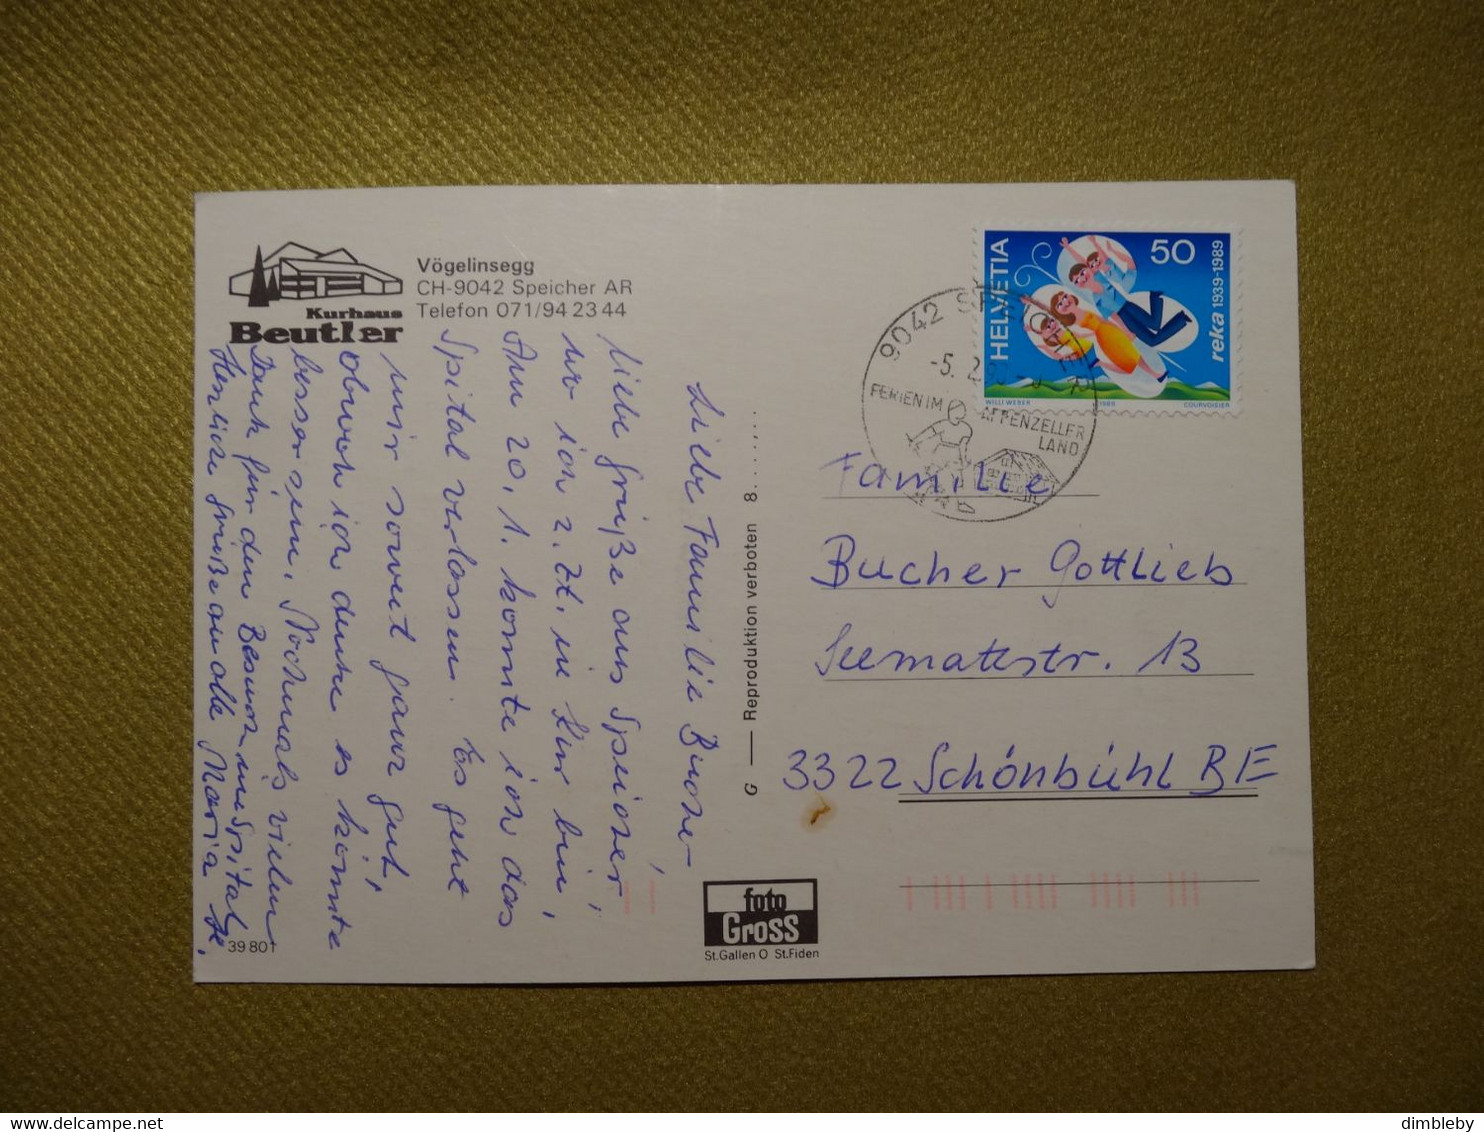 Kurhaus
Beutler
Vögelinsegg
CH-9042 Speicher AR
Telefon 071/94 23 44
Liebe Familie Bucher
liebe Grüße aus Speicher,
wo ich z. Zt. in Kur bin,
Am 20, 1. konnte ich das
Spital verlassen. Es geht
mir soweit ganz gut,
obwohl ich denke es könnte
besser sein. Nochmals vielen
Dank für den Besuch im Spital,
Herzliche Grüße an alle Maria H.
39 801
G — Reproduktion verboten 8.......
foto
GROSS
St.Gallen O St.Fiden
HELVETIA
50
reka 1939-1989
WILLI WEBER
COURVOISIER
9042 SPEICHER
-5. 2.
FERIEN IM APPENZELLER
LAND
Familie
Bucher Gottlieb
Seemattstr. 13
3322 Schönbühl BE
dimbleby